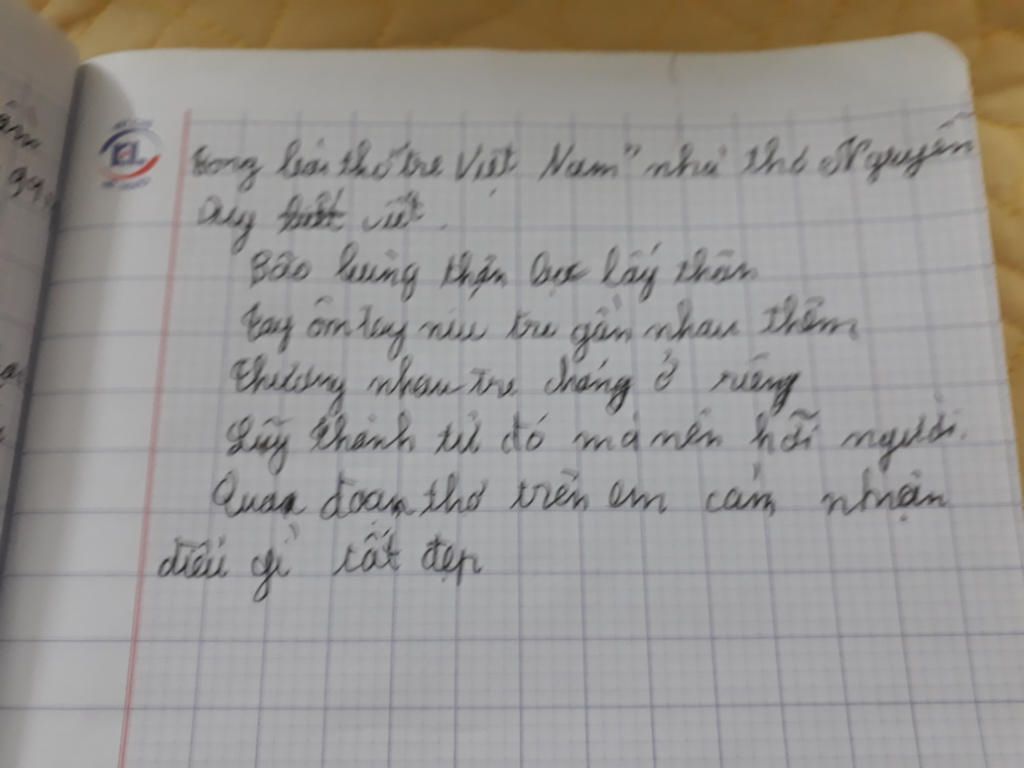 trong bài thơ tre Việt Nam" nhà thơ Nguyễn
Duy viết.
Bão bùng thân bọc lấy thân
tay ôm tay níu tre gần nhau thêm
thương nhau tre chẳng ở riêng
Lũy thành từ đó mà nên hỡi người.
Qua đoạn thơ trên em cảm nhận
điều gì rất đẹp